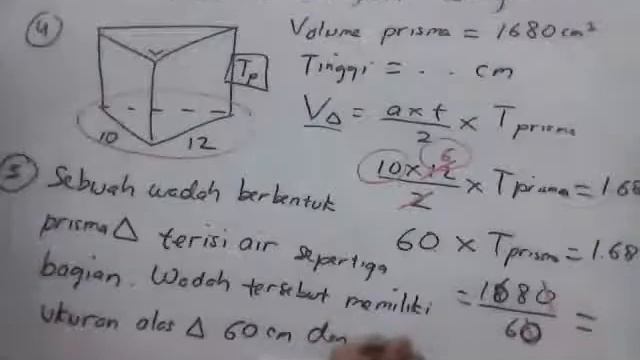 4
Volume prisma = 1680 cm³
Tinggi = . . cm
Tp
10
12
V△ = a x t / 2 x Tprisma
6
10 x 12 / 2 x Tprisma = 1.68
60 x Tprisma = 1.68
= 1680 / 60 =
5 Sebuah wadah berbentuk
prisma △ terisi air sepertiga
bagian. Wadah tersebut memiliki
ukuran alas △ 60 cm dan